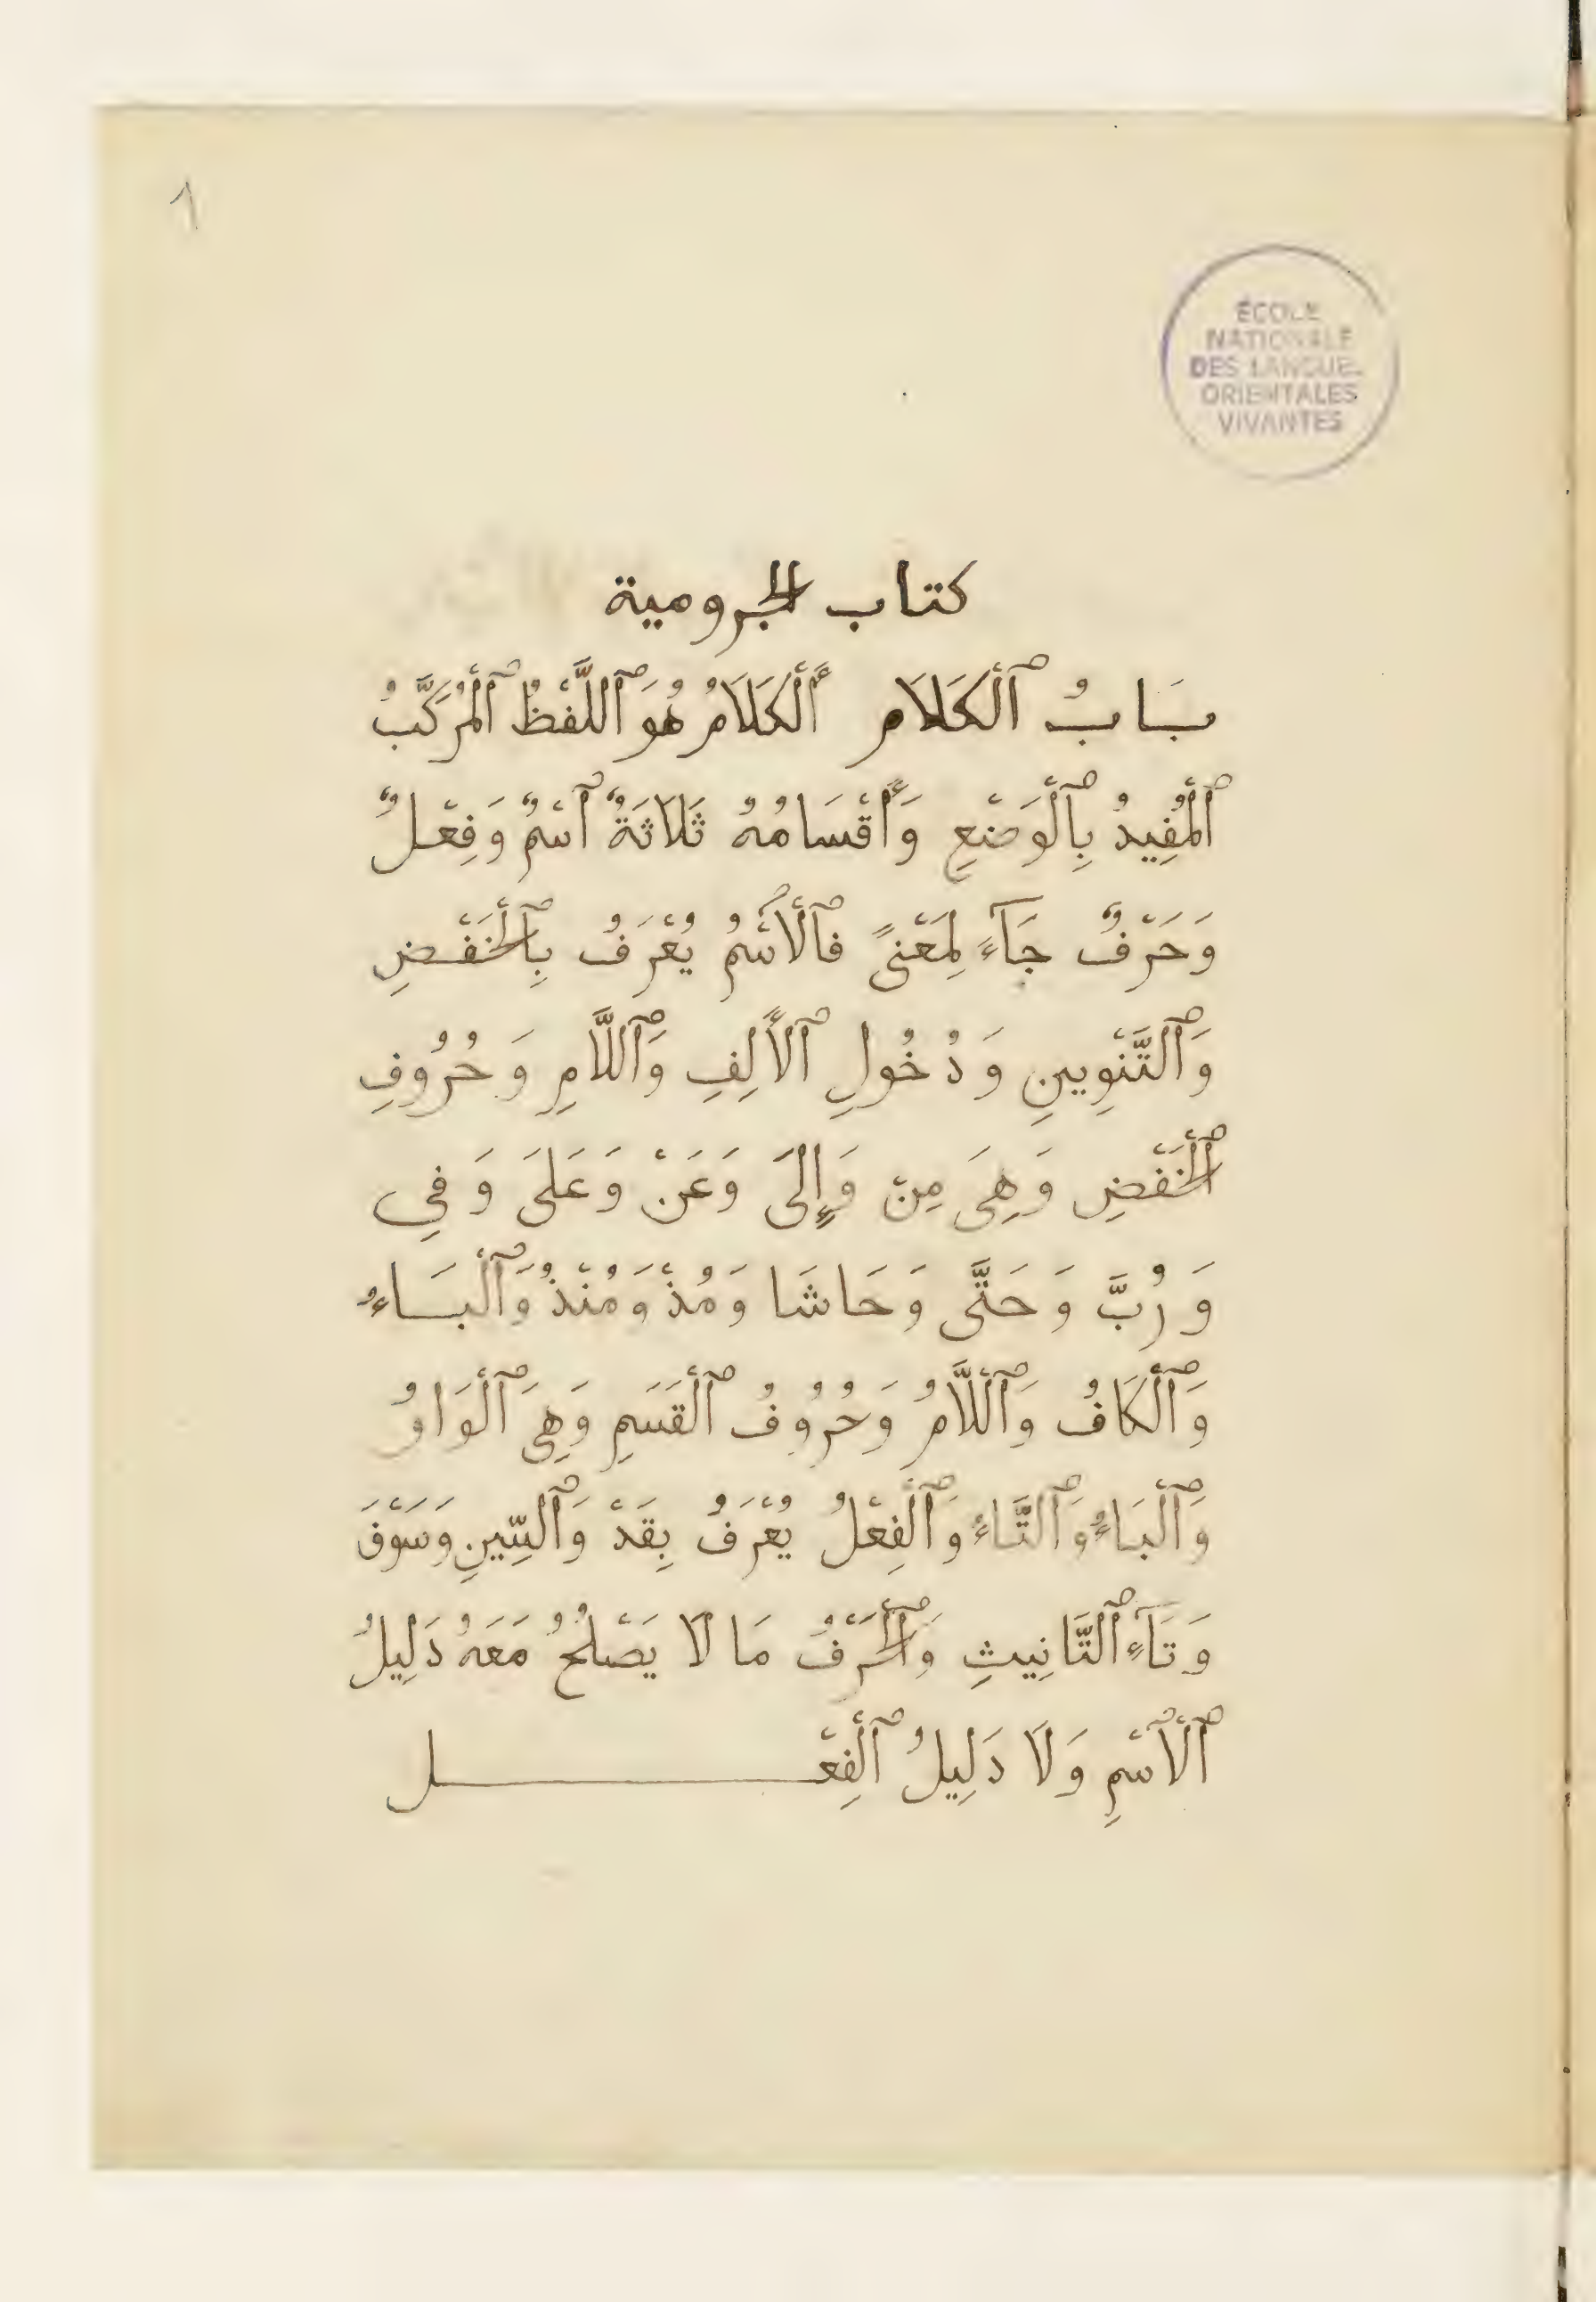 1
ÉCOLE
NATIONALE
DES LANGUES
ORIENTALES
VIVANTES
كتاب الجرومية
بَابُ ٱلْكَلَامِ أَلْكَلَامُ هُوَ ٱللَّفْظُ ٱلْمُرَكَّبُ
ٱلْمُفِيدُ بِٱلْوَضْعِ وَأَقْسَامُهُ ثَلَاثَةٌ ٱسْمٌ وَفِعْلٌ
وَحَرْفٌ جَآءَ لِمَعْنًى فَٱلْٱسْمُ يُعْرَفُ بِٱلْخَفْضِ
وَٱلتَّنْوِيينِ وَدُخُولِ ٱلْأَلِفِ وَٱللَّامِ وَحُرُوفِ
ٱلْخَفْضِ وَهِىَ مِنْ وَإِلَى وَعَنْ وَعَلَى وَفِي
وَرُبَّ وَحَتَّى وَحَاشَا وَمُذْ وَمُنْذُ وَٱلْبَاءُ
وَٱلْكَافُ وَٱللَّامُ وَحُرُوفُ ٱلْقَسَمِ وَهِىَ ٱلْوَاوُ
وَٱلْبَاءُ وَٱلتَّاءُ وَٱلْفِعْلُ يُعْرَفُ بِقَدْ وَٱلسِّينِ وَسَوْفَ
وَتَآءِ ٱلتَّانِيثِ وَٱلْحَرْفُ مَا لَا يَصْلُحُ مَعَهُ دَلِيلُ
ٱلْٱسْمِ وَلَا دَلِيلُ ٱلْفِعْل